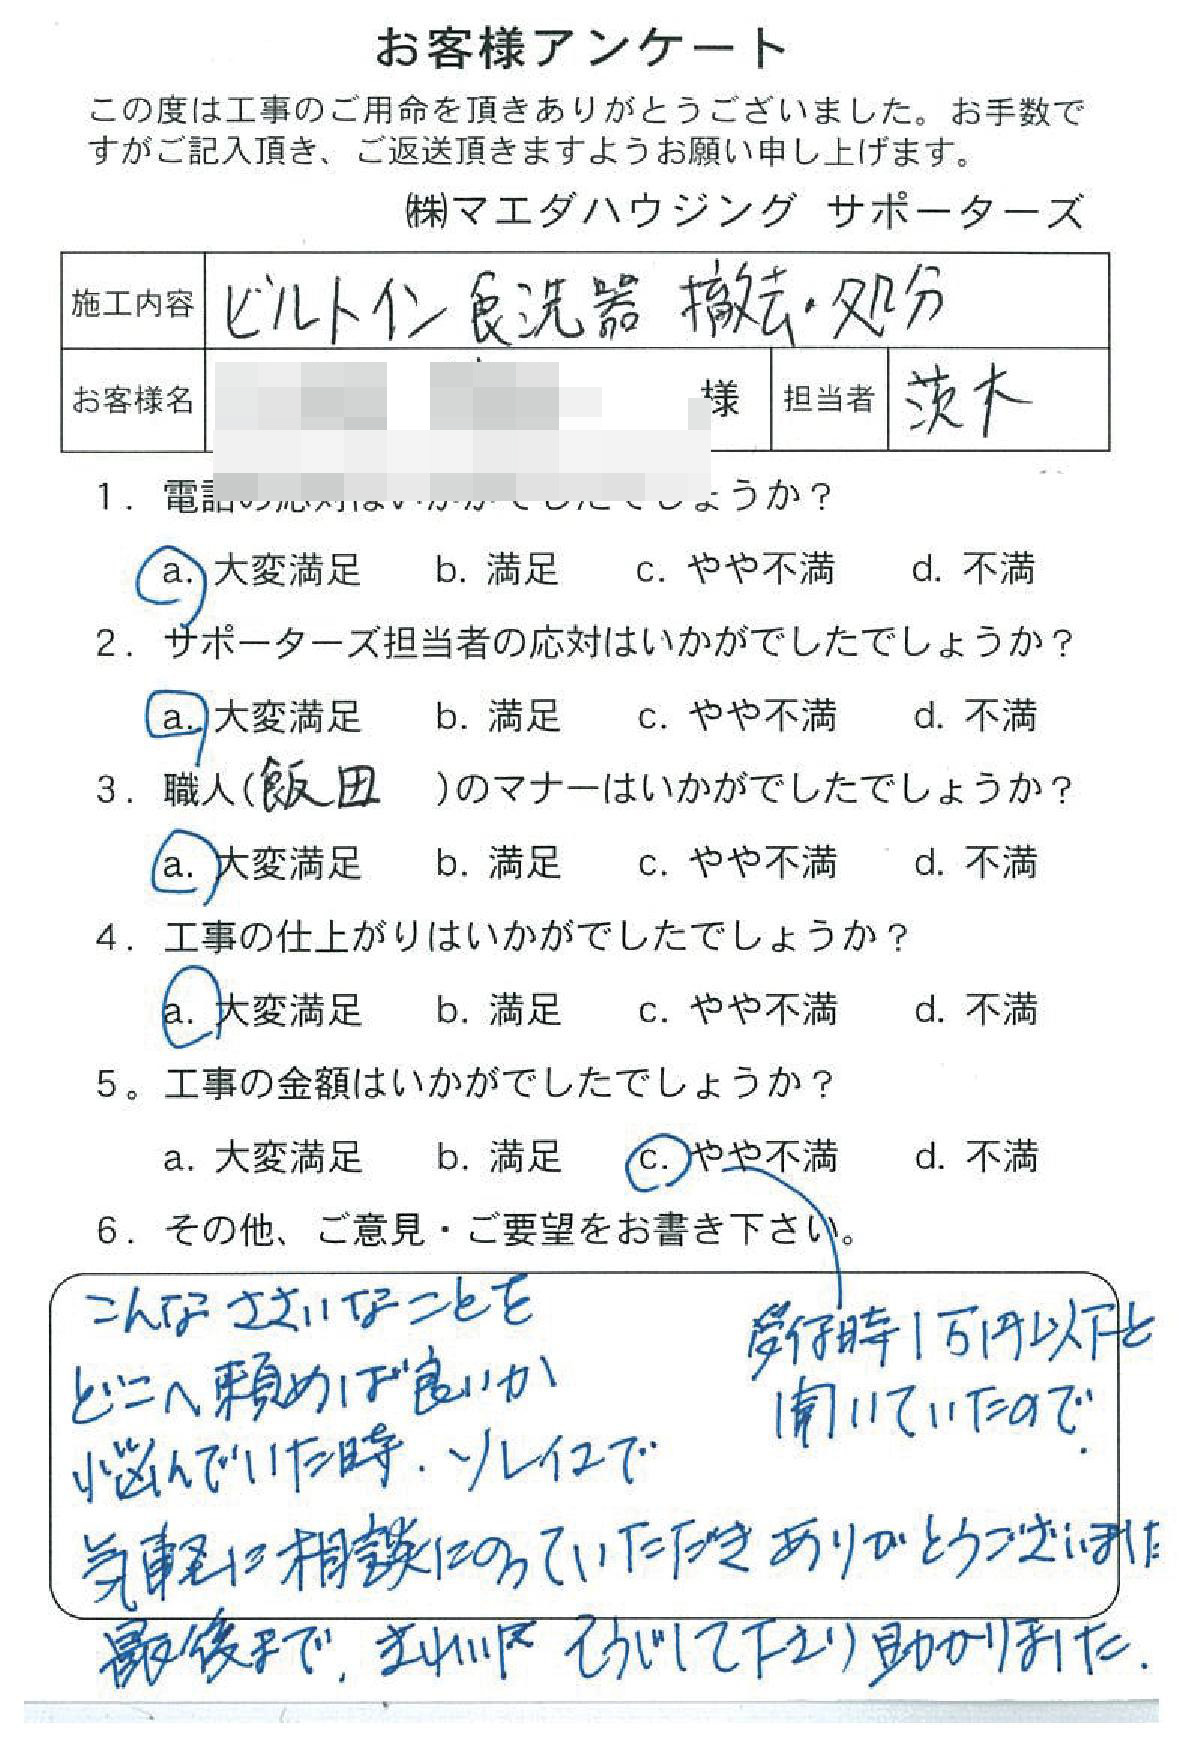 お客様アンケート
この度は工事のご用命を頂きありがとうございました。お手数で
すがご記入頂き、ご返送頂きますようお願い申し上げます。
㈱マエダハウジング サポーターズ
施工内容 ビルトイン食洗器 撤去・処分
お客様名 様 担当者 茨木
1. 電話の応対はいかがでしたでしょうか？
a. 大変満足 b. 満足 c. やや不満 d. 不満
2. サポーターズ担当者の応対はいかがでしたでしょうか？
a. 大変満足 b. 満足 c. やや不満 d. 不満
3. 職人(飯田 )のマナーはいかがでしたでしょうか？
a. 大変満足 b. 満足 c. やや不満 d. 不満
4. 工事の仕上がりはいかがでしたでしょうか？
a. 大変満足 b. 満足 c. やや不満 d. 不満
5。工事の金額はいかがでしたでしょうか？
a. 大変満足 b. 満足 c. やや不満 d. 不満
6. その他、ご意見・ご要望をお書き下さい。
受付時1万円以下と
聞いていたので.
こんなささいなことを
どこへ頼めば良いか
悩んでいた時. ソレイユで
気軽に相談にのっていただきありがとうございました
最後まで, きれいにそうじして下さり助かりました.